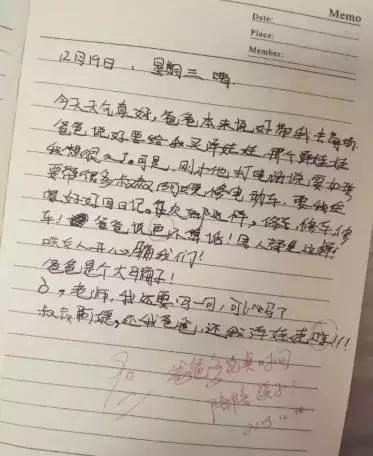 Memo
Date:
Place:
Member:
12月19日，星期三 晴
今天天气真好，爸爸本来说好带我去商场
爸爸说好要给我买洋娃娃 那个洋娃娃
我想很久了。可是，刚才他打电话说要加班
要带很多叔叔阿姨修电动车。要我在
家好好写日记。每次都这样，修车修车修
车！爸爸说话不算话！男人都是这样！
人开心，骗我们！
爸爸是个大骗子！
老师，我还要写一句，可以吗？
叔叔阿姨，还我爸爸，还我洋娃娃！！！
爸爸 时间
陪陪孩子！